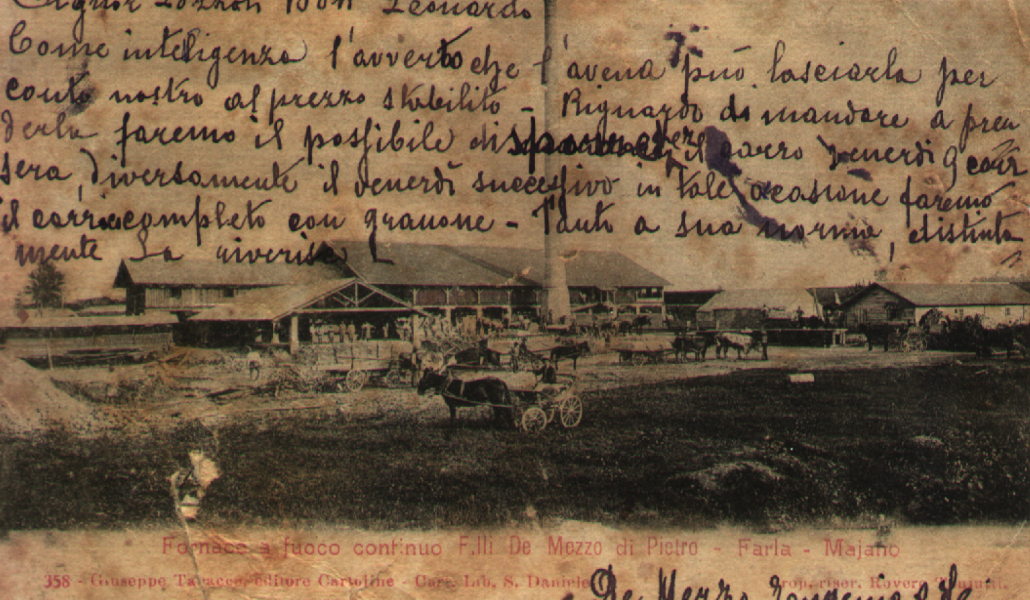 Signor Pozzon Don Leonardo
Come inteligenza l'avverto che l'avena può lasciarla per
conto nostro al prezzo stabilito - Riguardo di mandare a pren
derla faremo il possibile di il carro venerdi 9 corr
sera, diversamente il venerdì successivo in tale ocasione faremo
il carro completo con granone - Tanto a sua norma, distinta
mente La riverisco
Fornace a fuoco continuo F.lli De Mezzo di Pietro - Farla - Majano
358 - Giuseppe Tavacco, editore Cartoline - Cart. Lib. S. Daniele Prop. riser. Rovere
De Mezzo